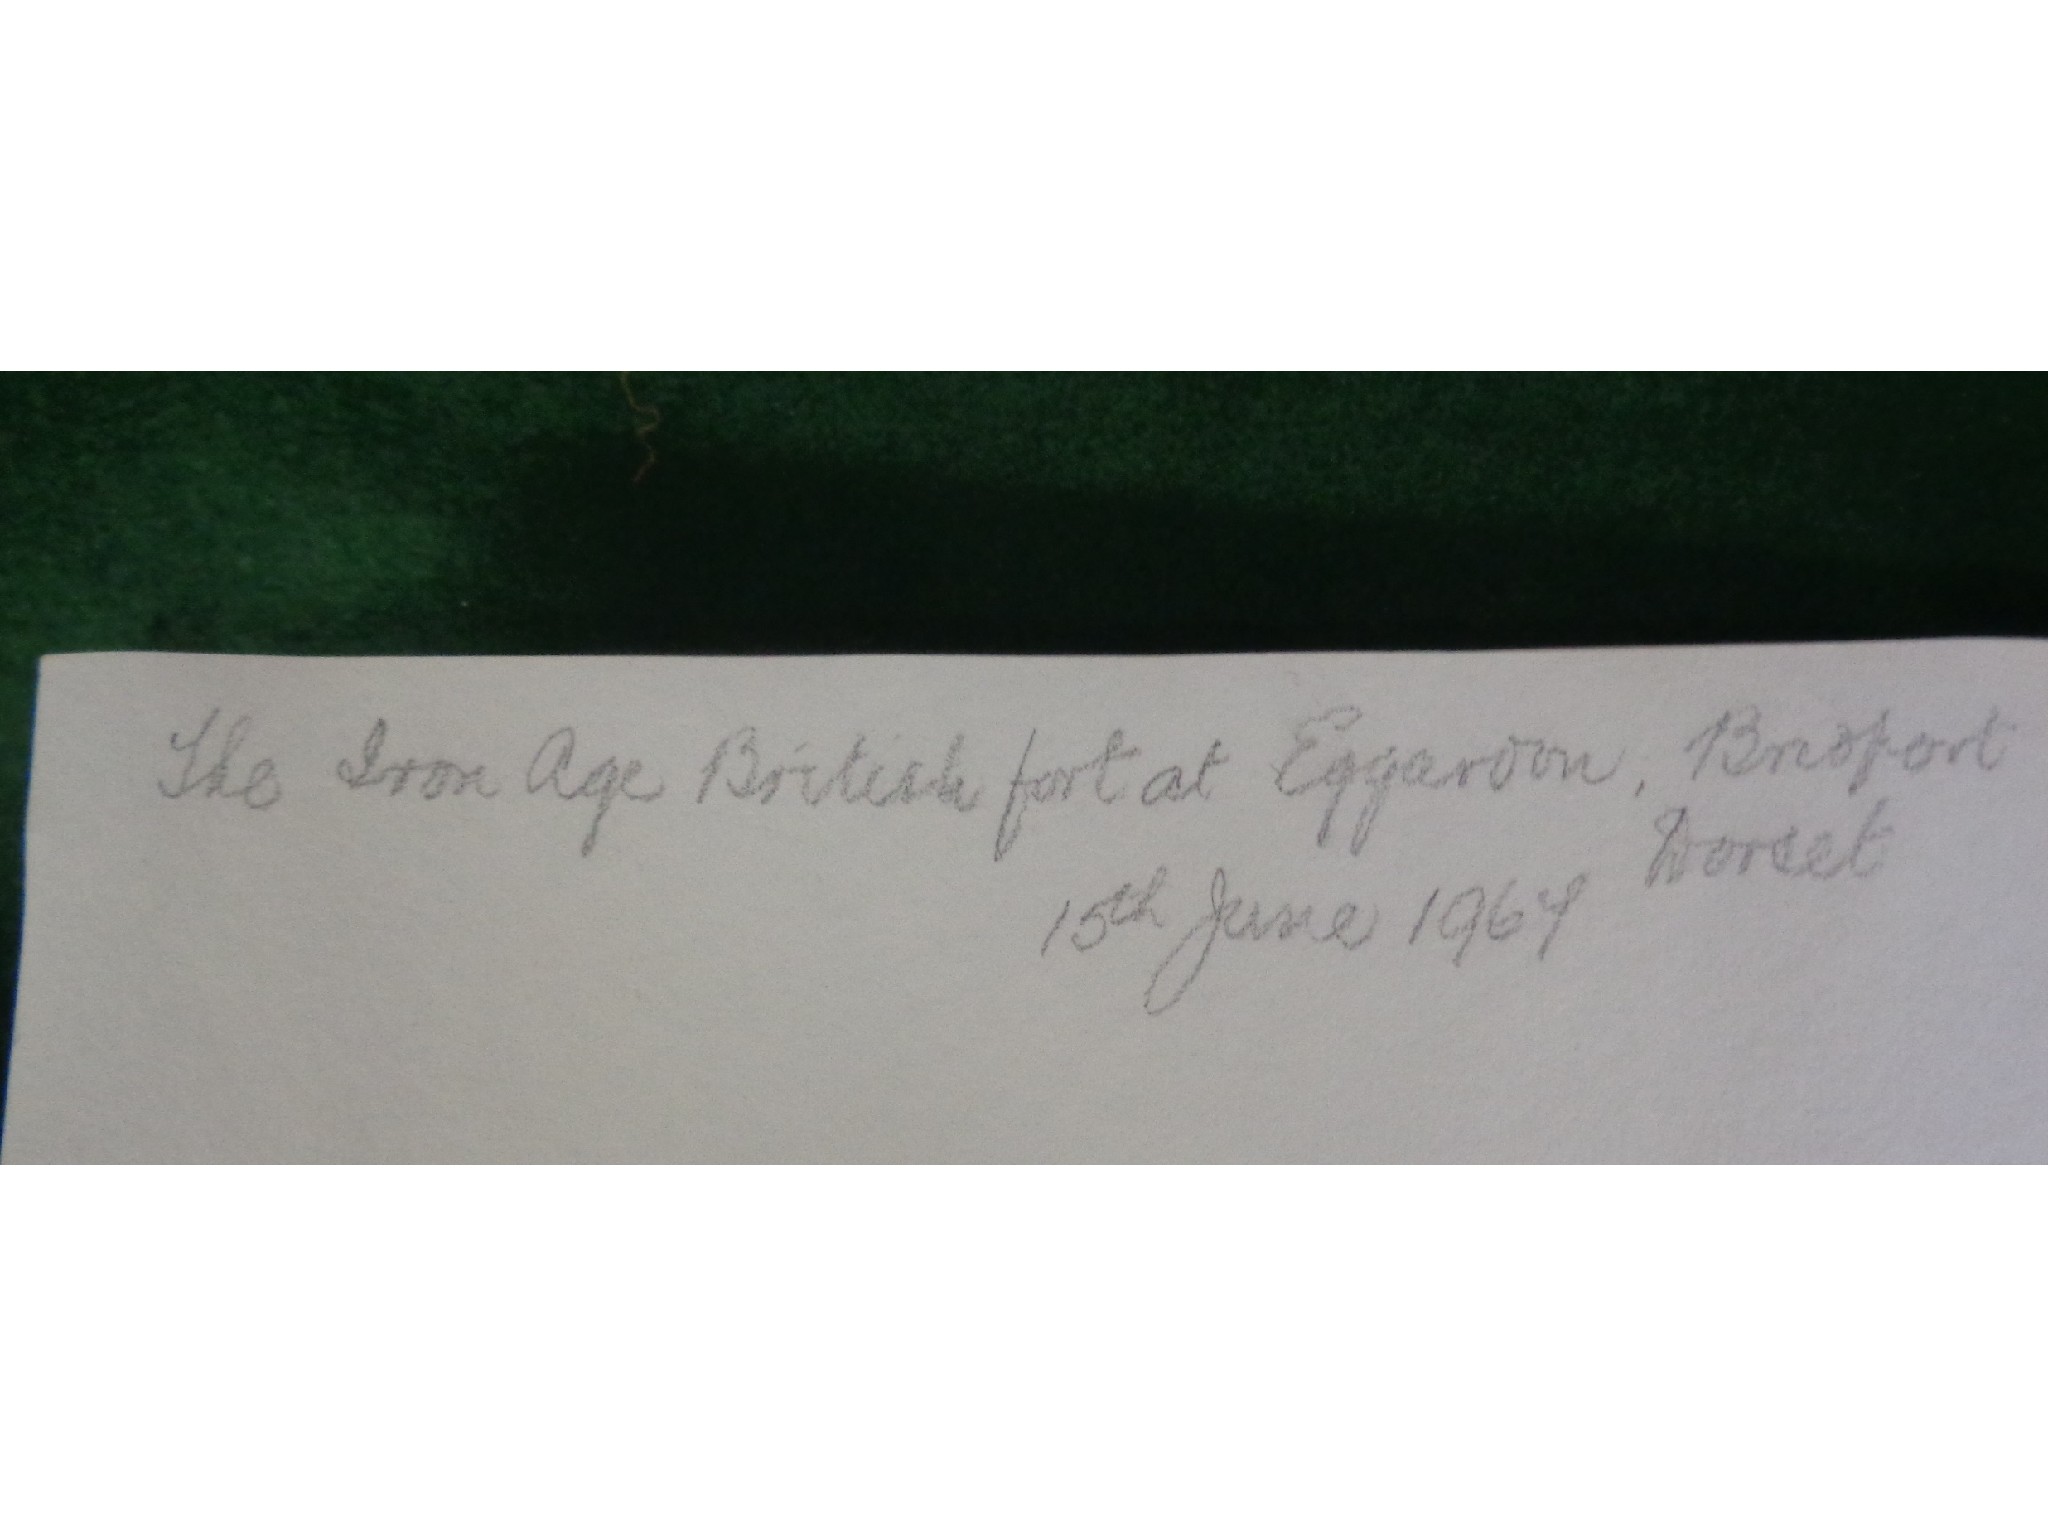 The Iron Age British fort at Eggardon, Bridport
Dorset
15th June 1964